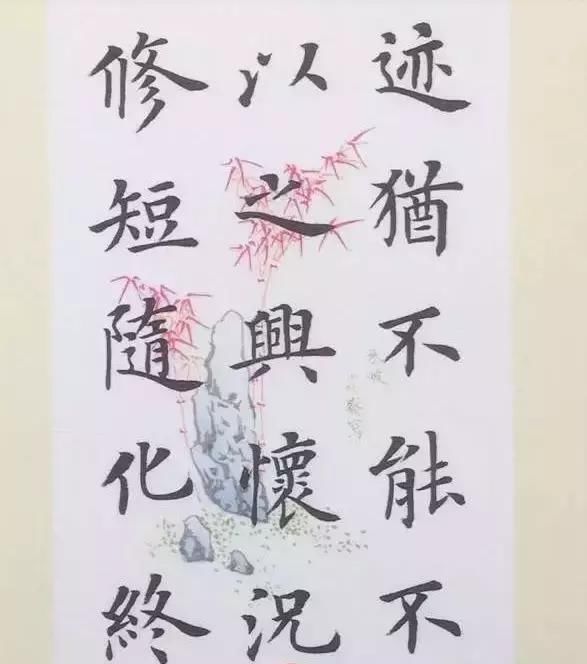 迹猶不能不
以之興懷況
修短隨化終